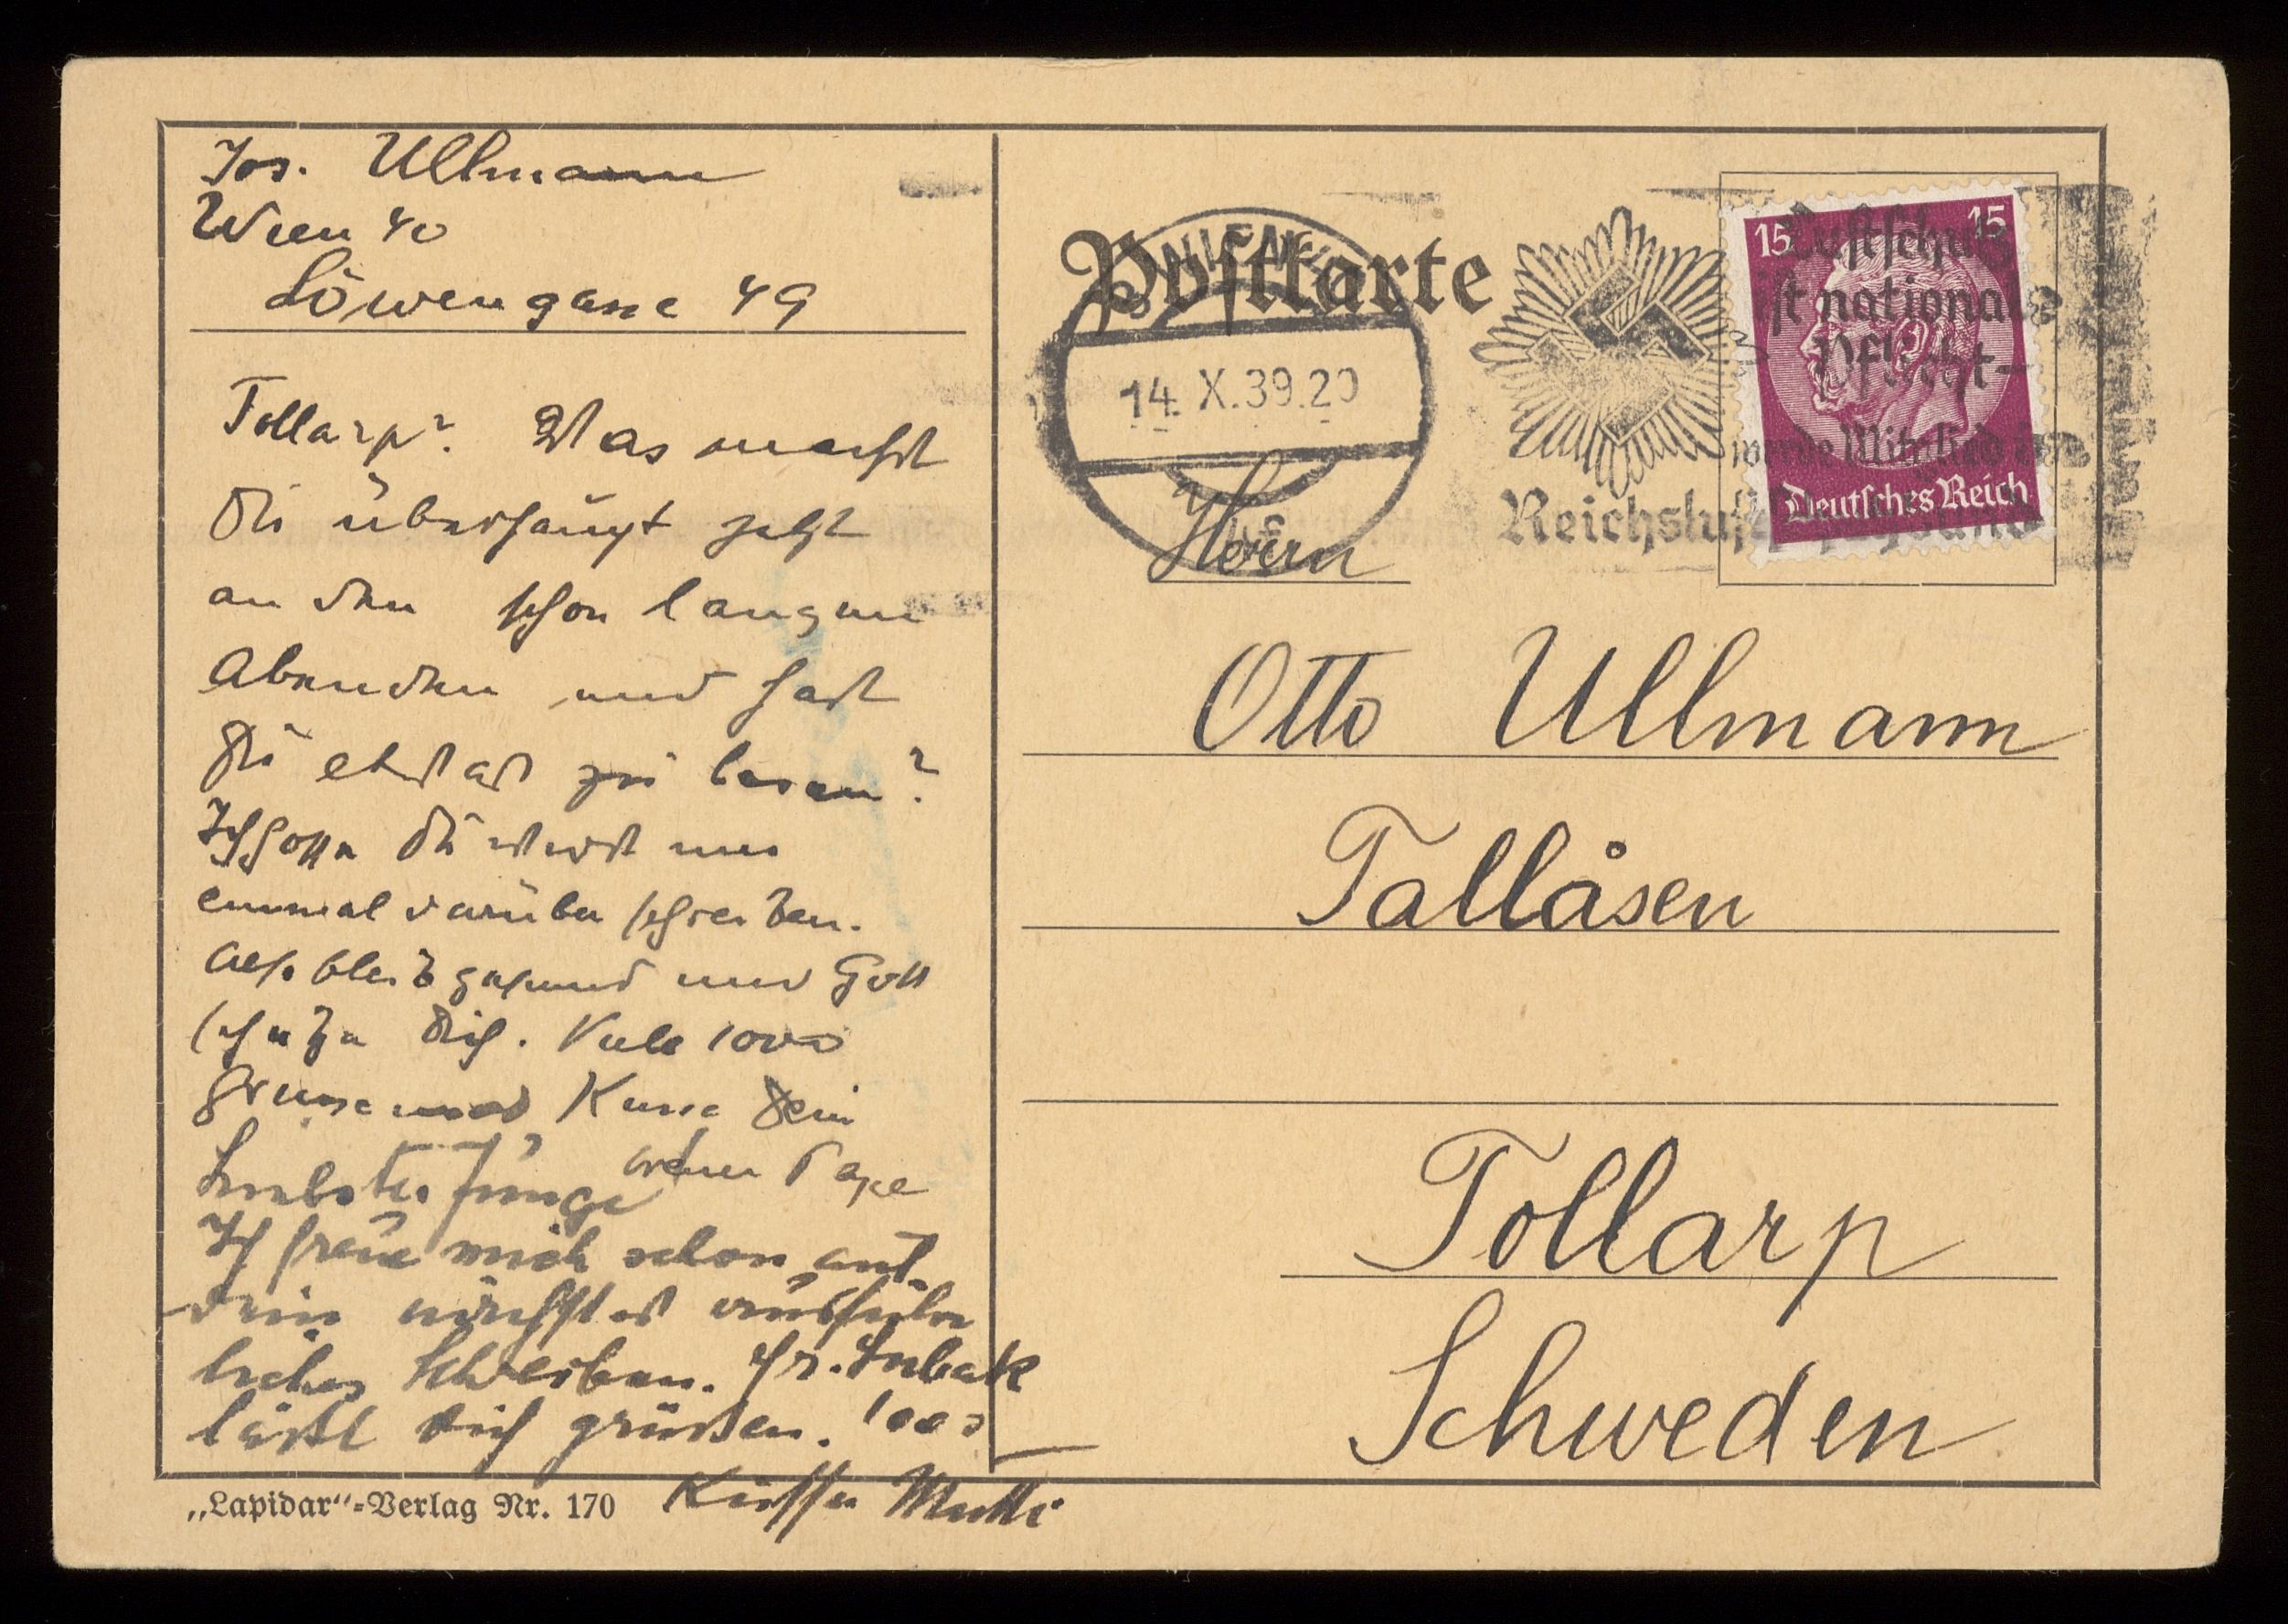 Jos. Ullmann
Wien 40
Löwengasse 49
Tollarp? Was machst
Du überhaupt jetzt
an den schon langen
Abenden und hast
Du etwas zu lesen?
Ich hoffe Du wirst uns
einmal darüber schreiben.
Also bleib gesund und Gott
schütze Dich. Viele 1000
Grüsse und Küsse Dein
treuer Papa
Liebster Junge
Ich freue mich schon auf
Dein nächstes ausführ
liches Schreiben. Fr.
läßt Dich grüßen. 1000
Küsse Mutti
„Lapidar“-Verlag Nr. 170
Postkarte
WIEN
14. X.39.20
Luftschutz
ist nationale
Pflicht
werde Mitglied im
Reichsluftschutzbund
15 15
Deutsches Reich
Herrn
Otto Ullmann
Tallåsen
Tollarp
Schweden